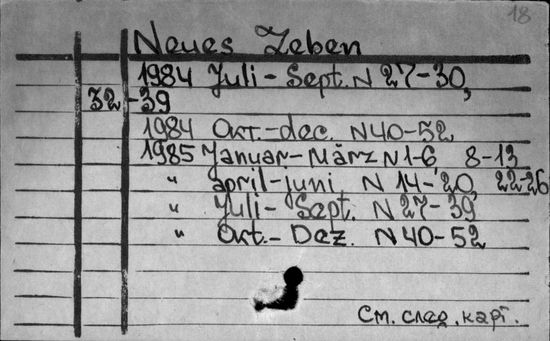 18
Neues Leben
1984 Juli - Sept. N 27-30,
32-39
1984 Okt.-dec. N 40-52
1985 Januar-März N 1-6, 8-13
" april-juni N 14-20, 22-26
" Juli - Sept. N 27-39
" Okt.- Dez. N 40-52
См. след. карт.